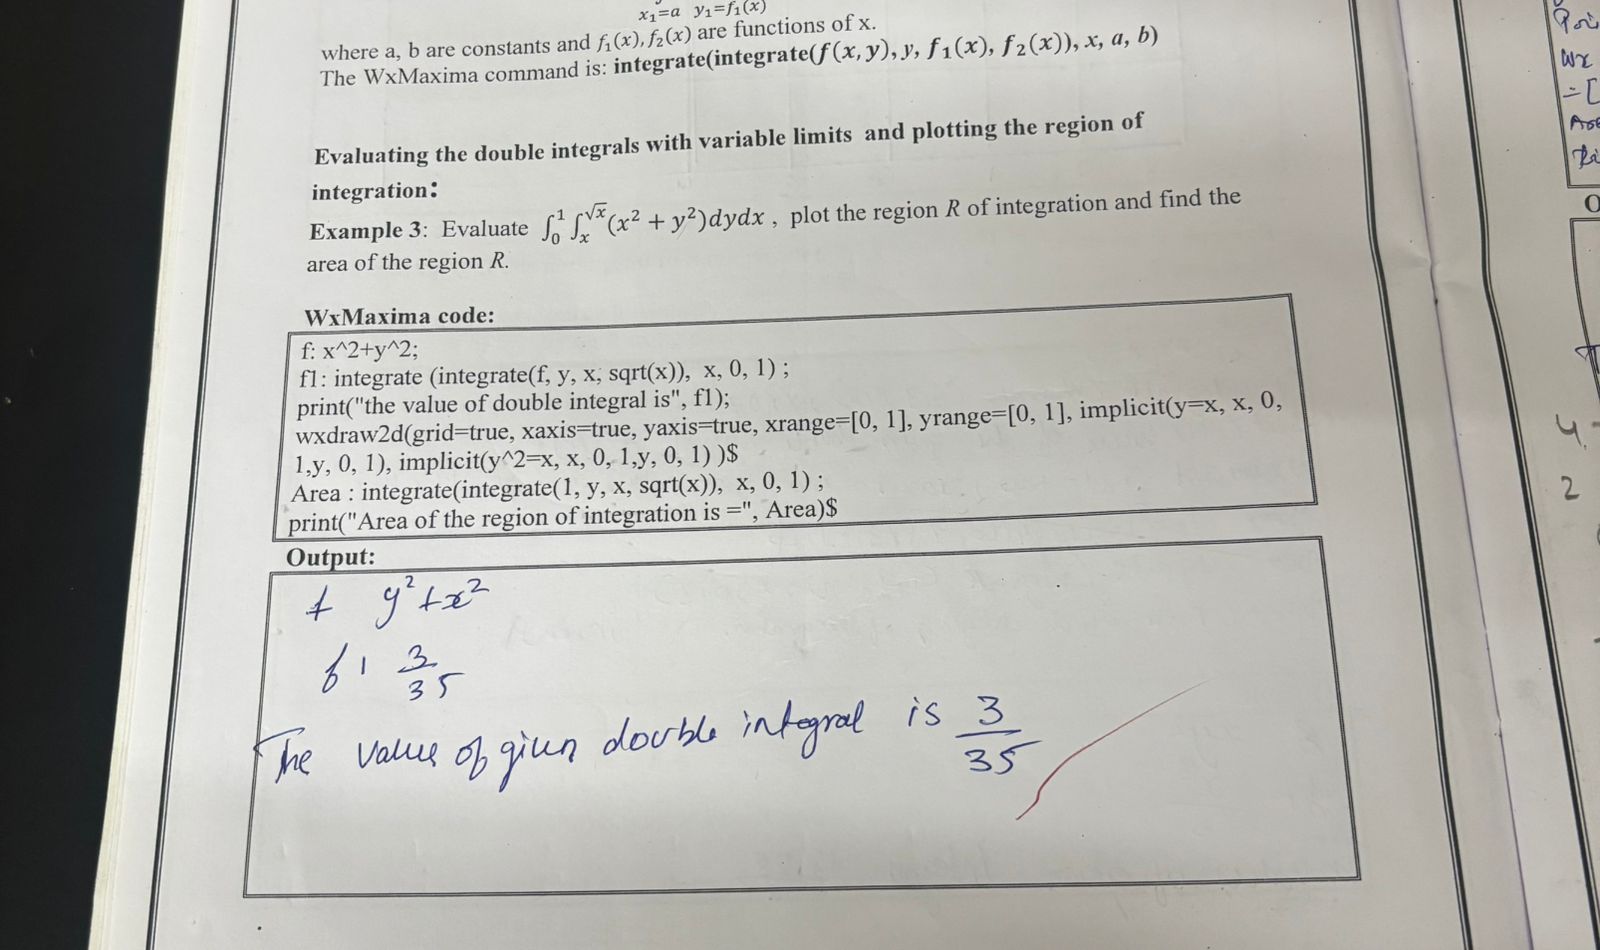 x₁=a y₁=f₁(x)
where a, b are constants and f₁(x), f₂(x) are functions of x.
The WxMaxima command is: integrate(integrate(f(x, y), y, f₁(x), f₂(x)), x, a, b)
Evaluating the double integrals with variable limits and plotting the region of
integration:
Example 3: Evaluate ∫₀¹ ∫ₓ^√x (x² + y²)dydx , plot the region R of integration and find the
area of the region R.
WxMaxima code:
f: x^2+y^2;
f1: integrate (integrate(f, y, x, sqrt(x)), x, 0, 1) ;
print("the value of double integral is", f1);
wxdraw2d(grid=true, xaxis=true, yaxis=true, xrange=[0, 1], yrange=[0, 1], implicit(y=x, x, 0,
1,y, 0, 1), implicit(y^2=x, x, 0, 1,y, 0, 1) )$
Area : integrate(integrate(1, y, x, sqrt(x)), x, 0, 1) ;
print("Area of the region of integration is =", Area)$
Output:
f y²+x²
f1 3/35
The value of given double integral is 3/35
Wx
=[
O
4
2